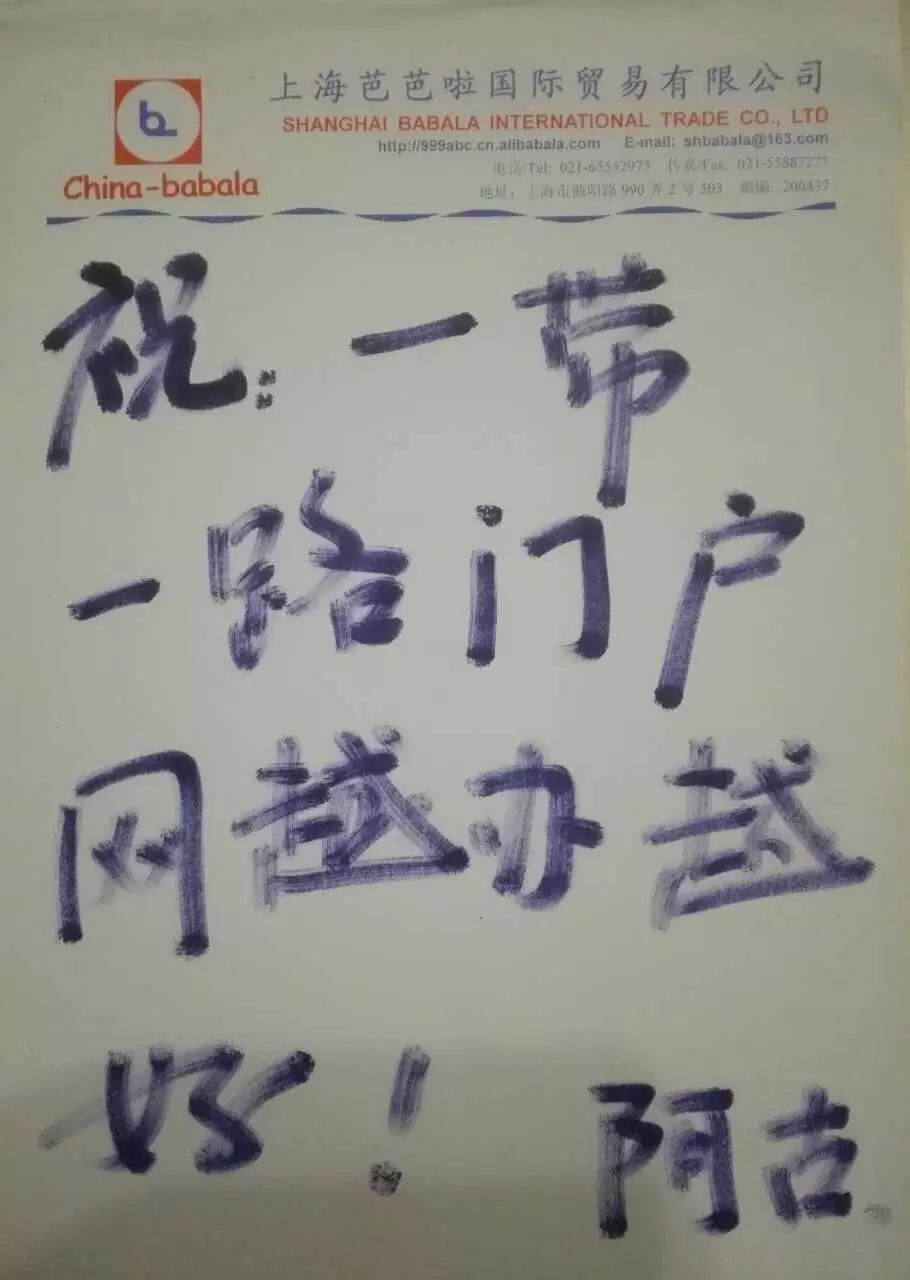 上海芭芭啦国际贸易有限公司
SHANGHAI BABALA INTERNATIONAL TRADE CO., LTD
http://999abc.cn.alibabala.com E-mail: shbabala@163.com
电话/Tel: 021-65552975 传真/Fax: 021-55887277
地址: 上海市曲阳路990弄2号503 邮编: 200437
China-babala
祝:一带
一路门户
网越办越
好!
阿古